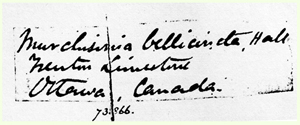 Murchisonia bellicincta, Hall
Trenton Limestone
Ottawa, Canada.
73.866.